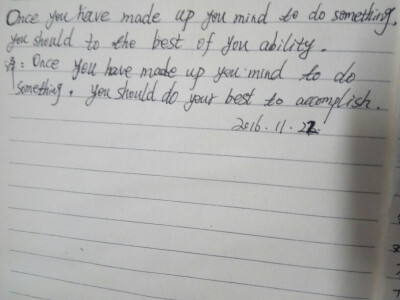 Once you have made up you mind to do something,
you should to the best of you ability.
译: Once you have made up you mind to do
something, you should do your best to accomplish.
2016.11.22